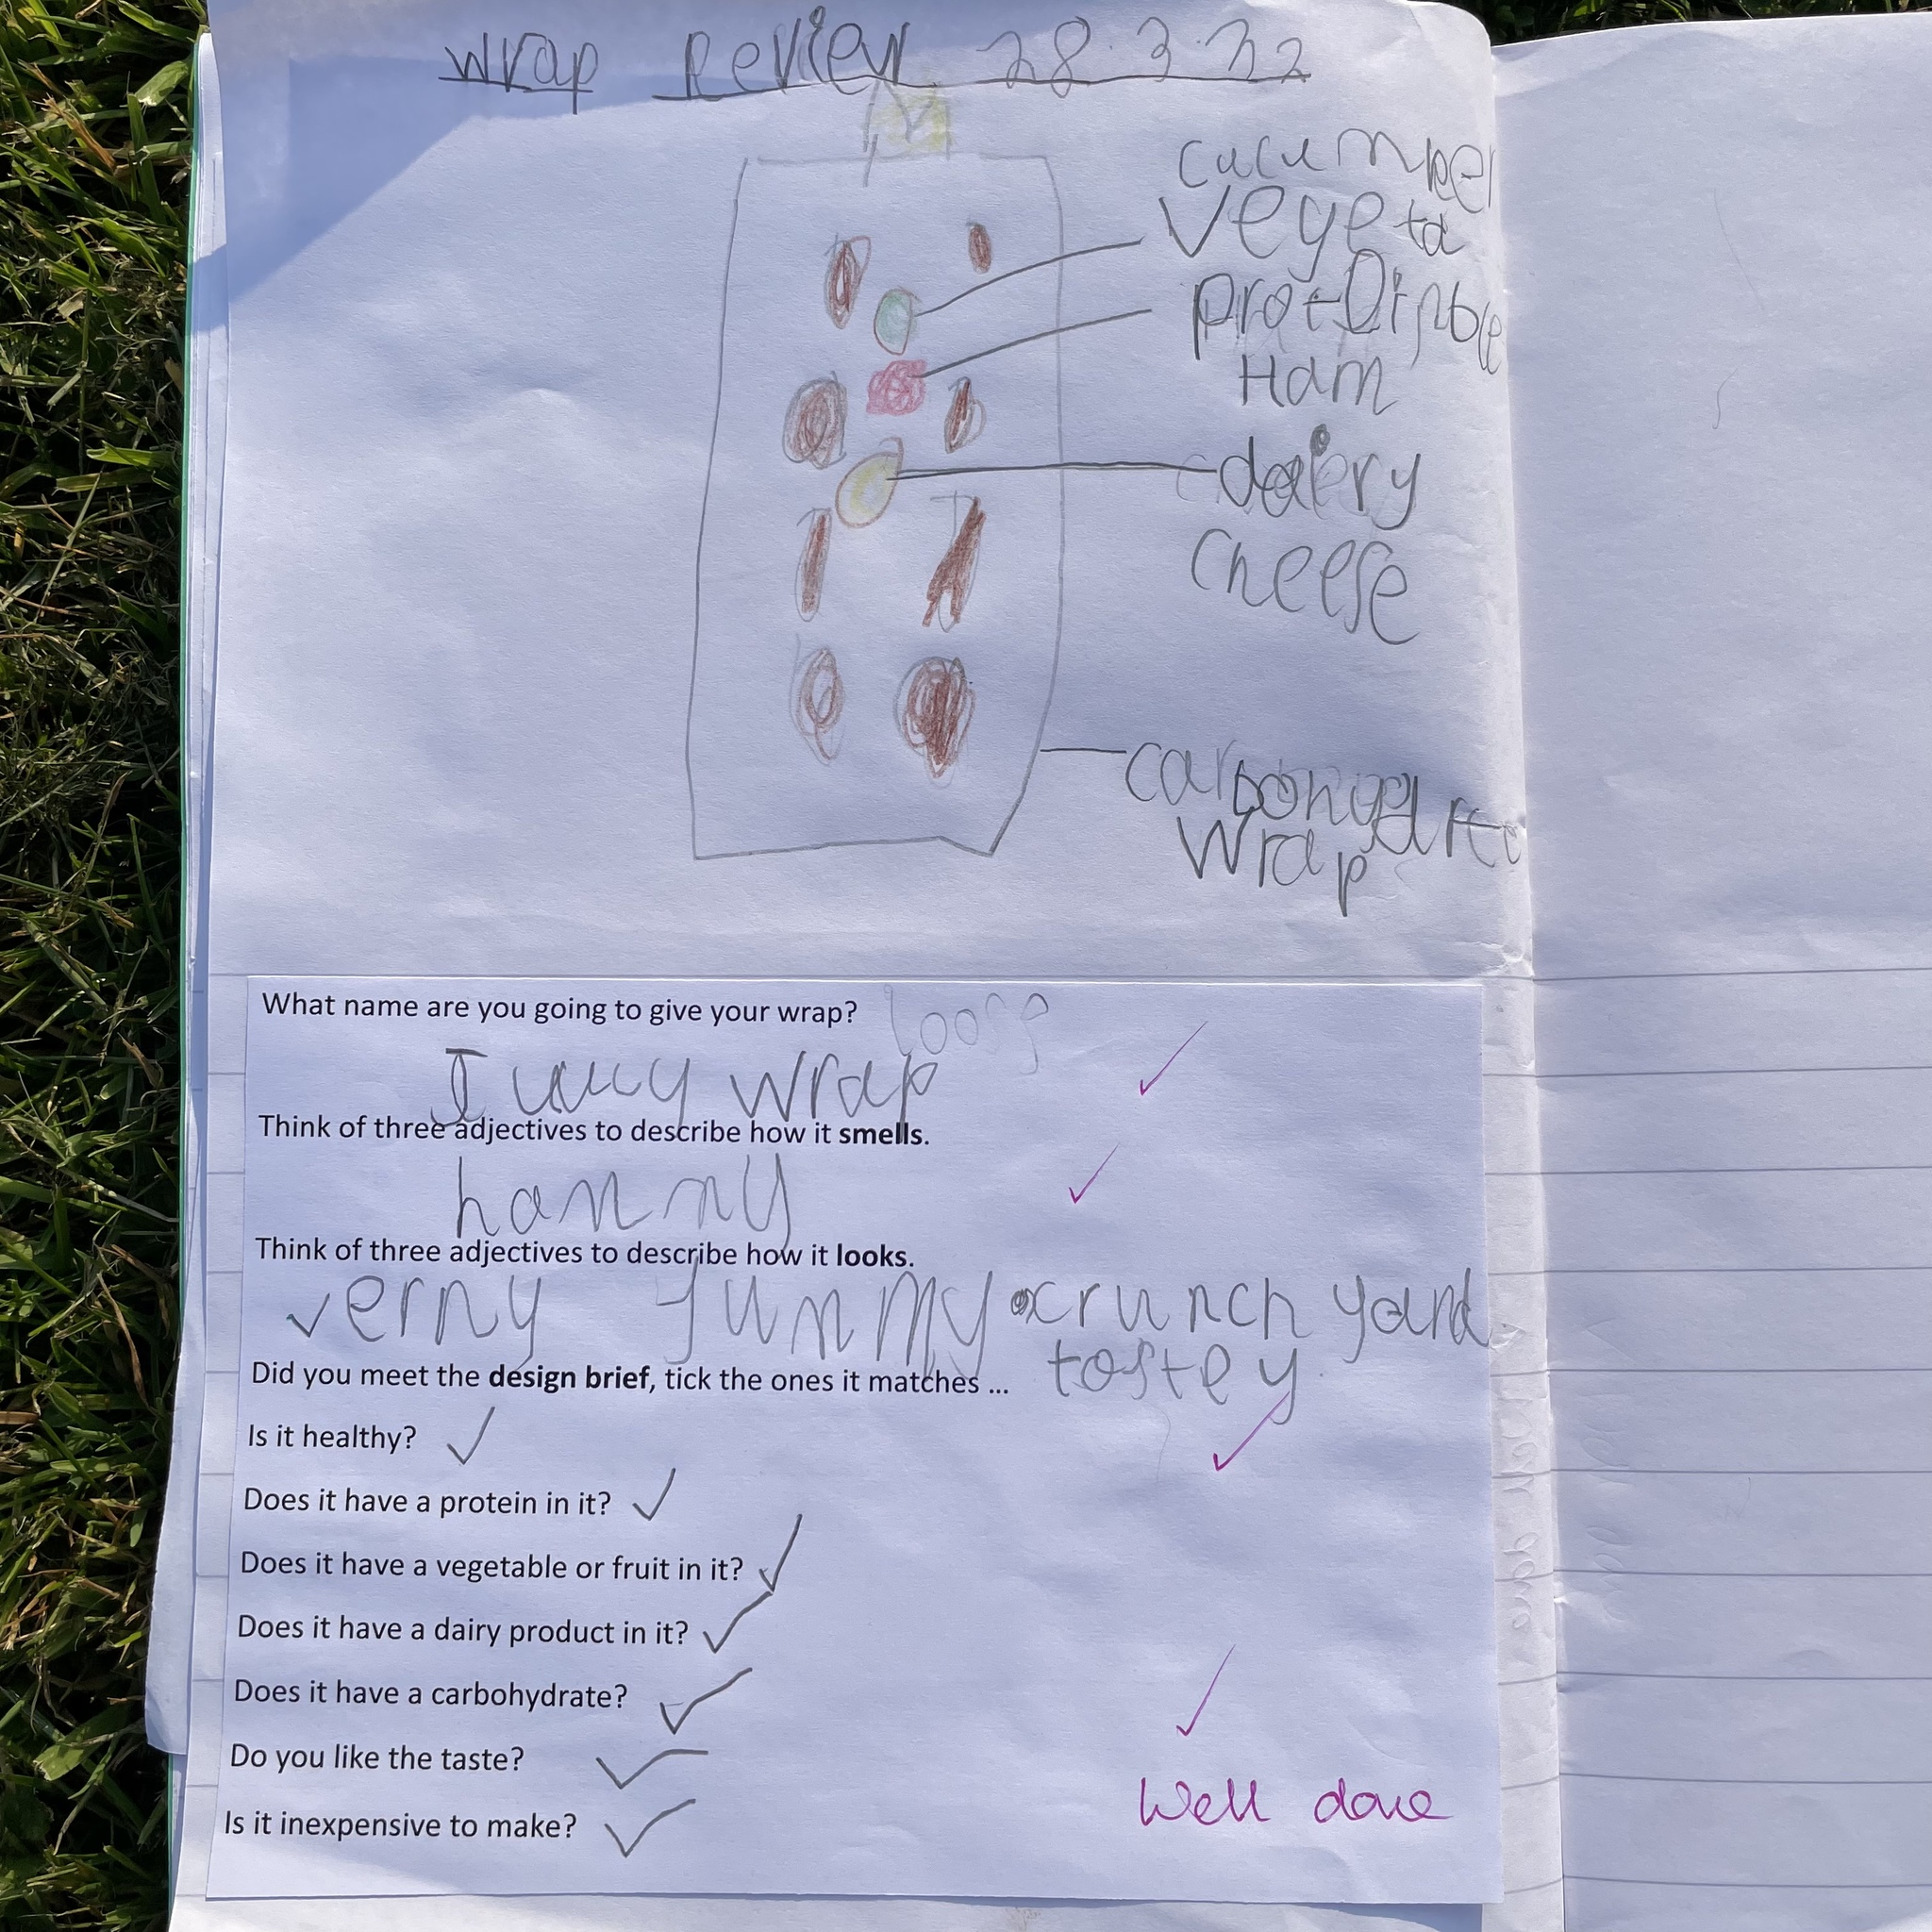 wrap Review 28.3.22
cucumber
vegeta
ble
protin
Ham
daiery
cheese
wrap
What name are you going to give your wrap?
wrap
Think of three adjectives to describe how it smells.
hammy
Think of three adjectives to describe how it looks.
verny yummy crunchy and
tostey
Did you meet the design brief, tick the ones it matches ...
Is it healthy? ✓
Does it have a protein in it? ✓
Does it have a vegetable or fruit in it? ✓
Does it have a dairy product in it? ✓
Does it have a carbohydrate? ✓
Do you like the taste? ✓
Is it inexpensive to make? ✓
Well done